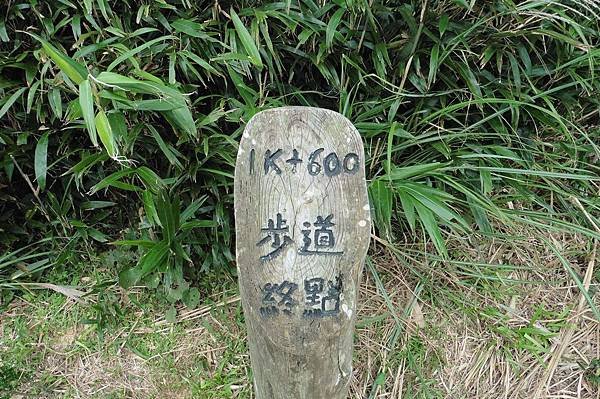 1K+600
歩道
終點